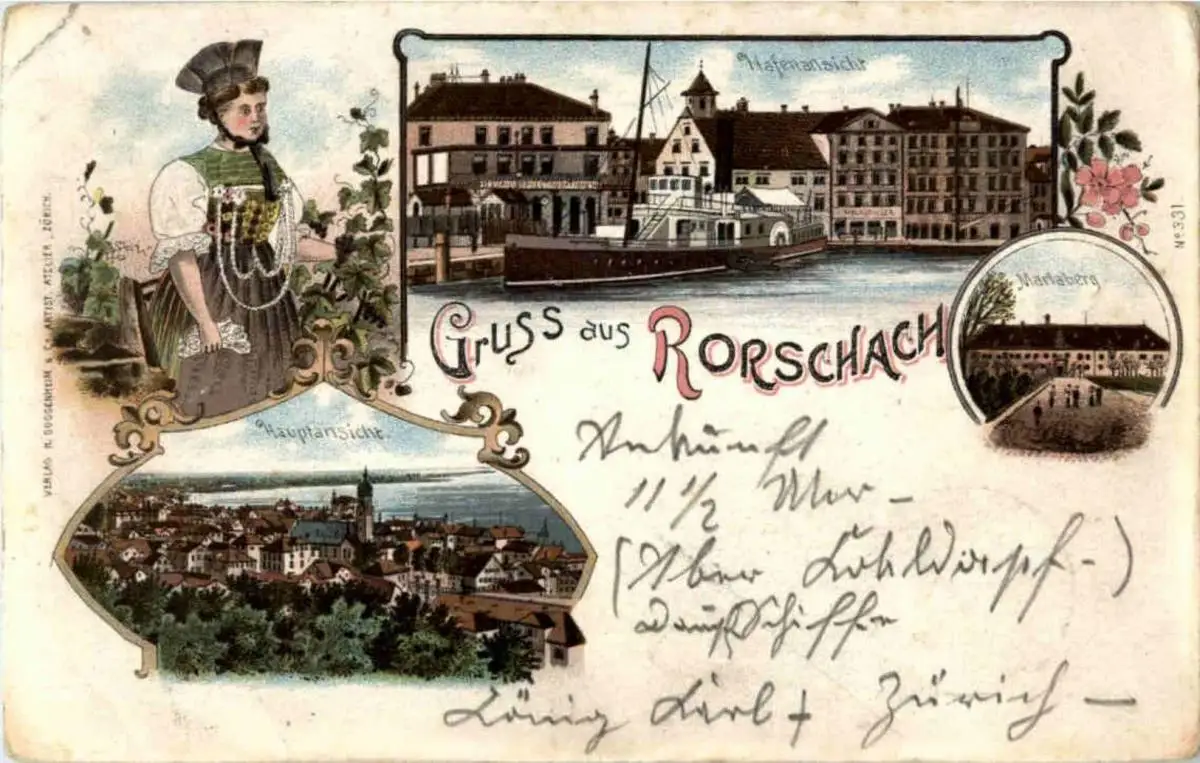 Hafenansicht
Gruss aus Rorschach
Mariaberg
No 331.
Hauptansicht.
VERLAG H. GUGGENHEIM & Co ARTIST. ATELIER, ZÜRICH.
Ankunft
11 1/2 Mor –
(Aber
Dampfschiffe
König Karl + Zürich –